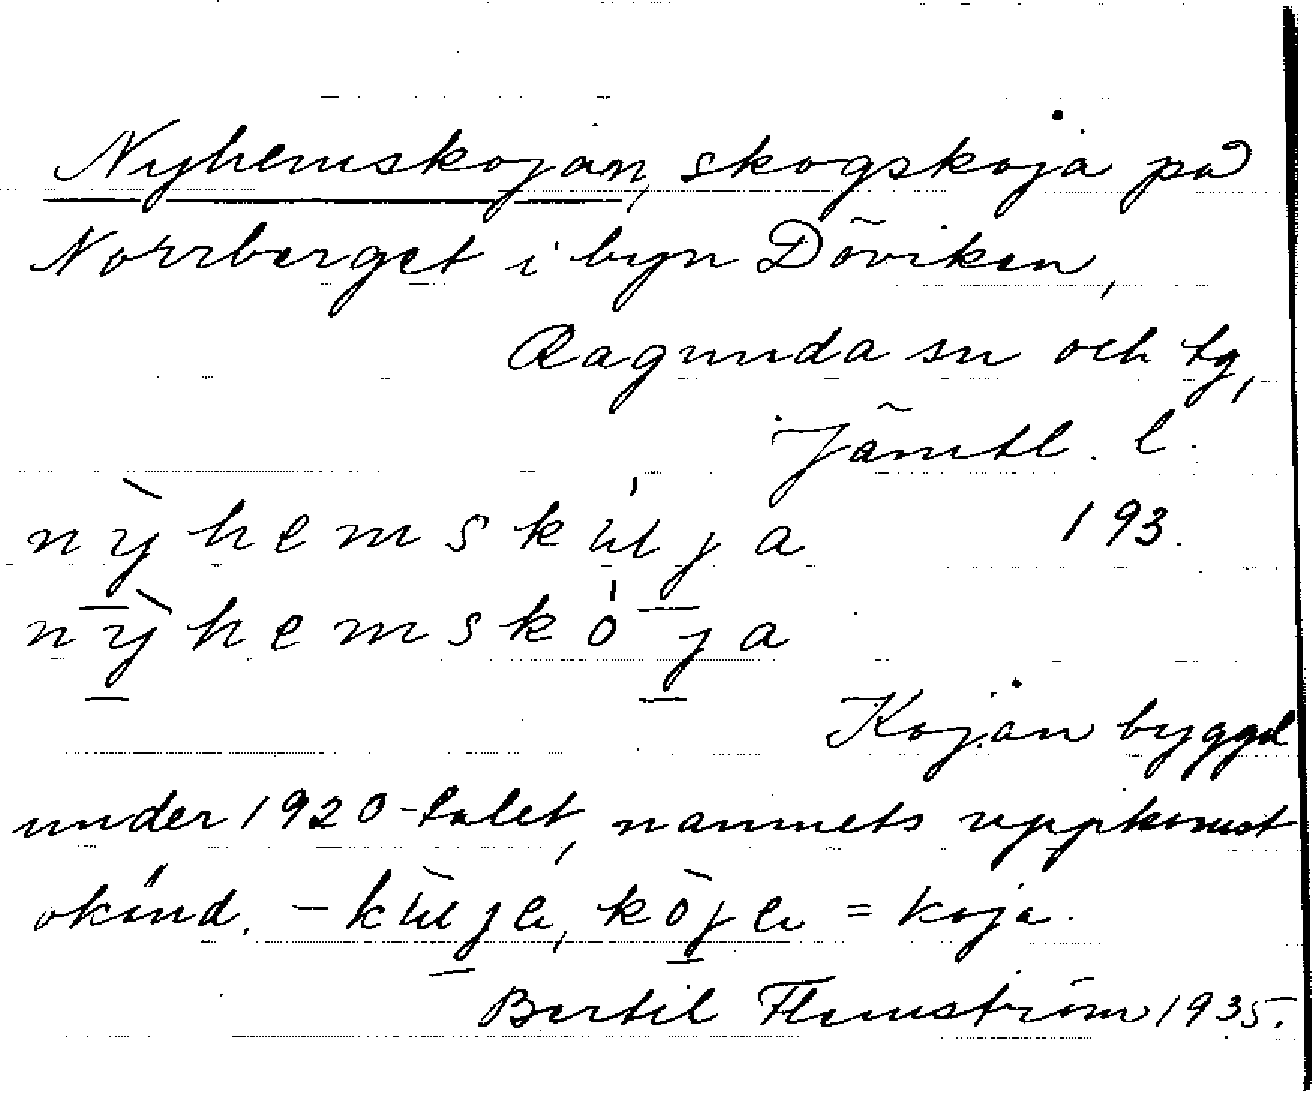 Nyhemskojan, skogskoja på
Norrberget i byn Döviken,
Ragunda sn och tg,
Jämtl. l.
nỳhemskúja 193.
nỳhemskója
Kojan byggd
under 1920-talet, namnets uppkomst
okänd. – kùja, kòja = koja.
Bertil Flemström 1935.